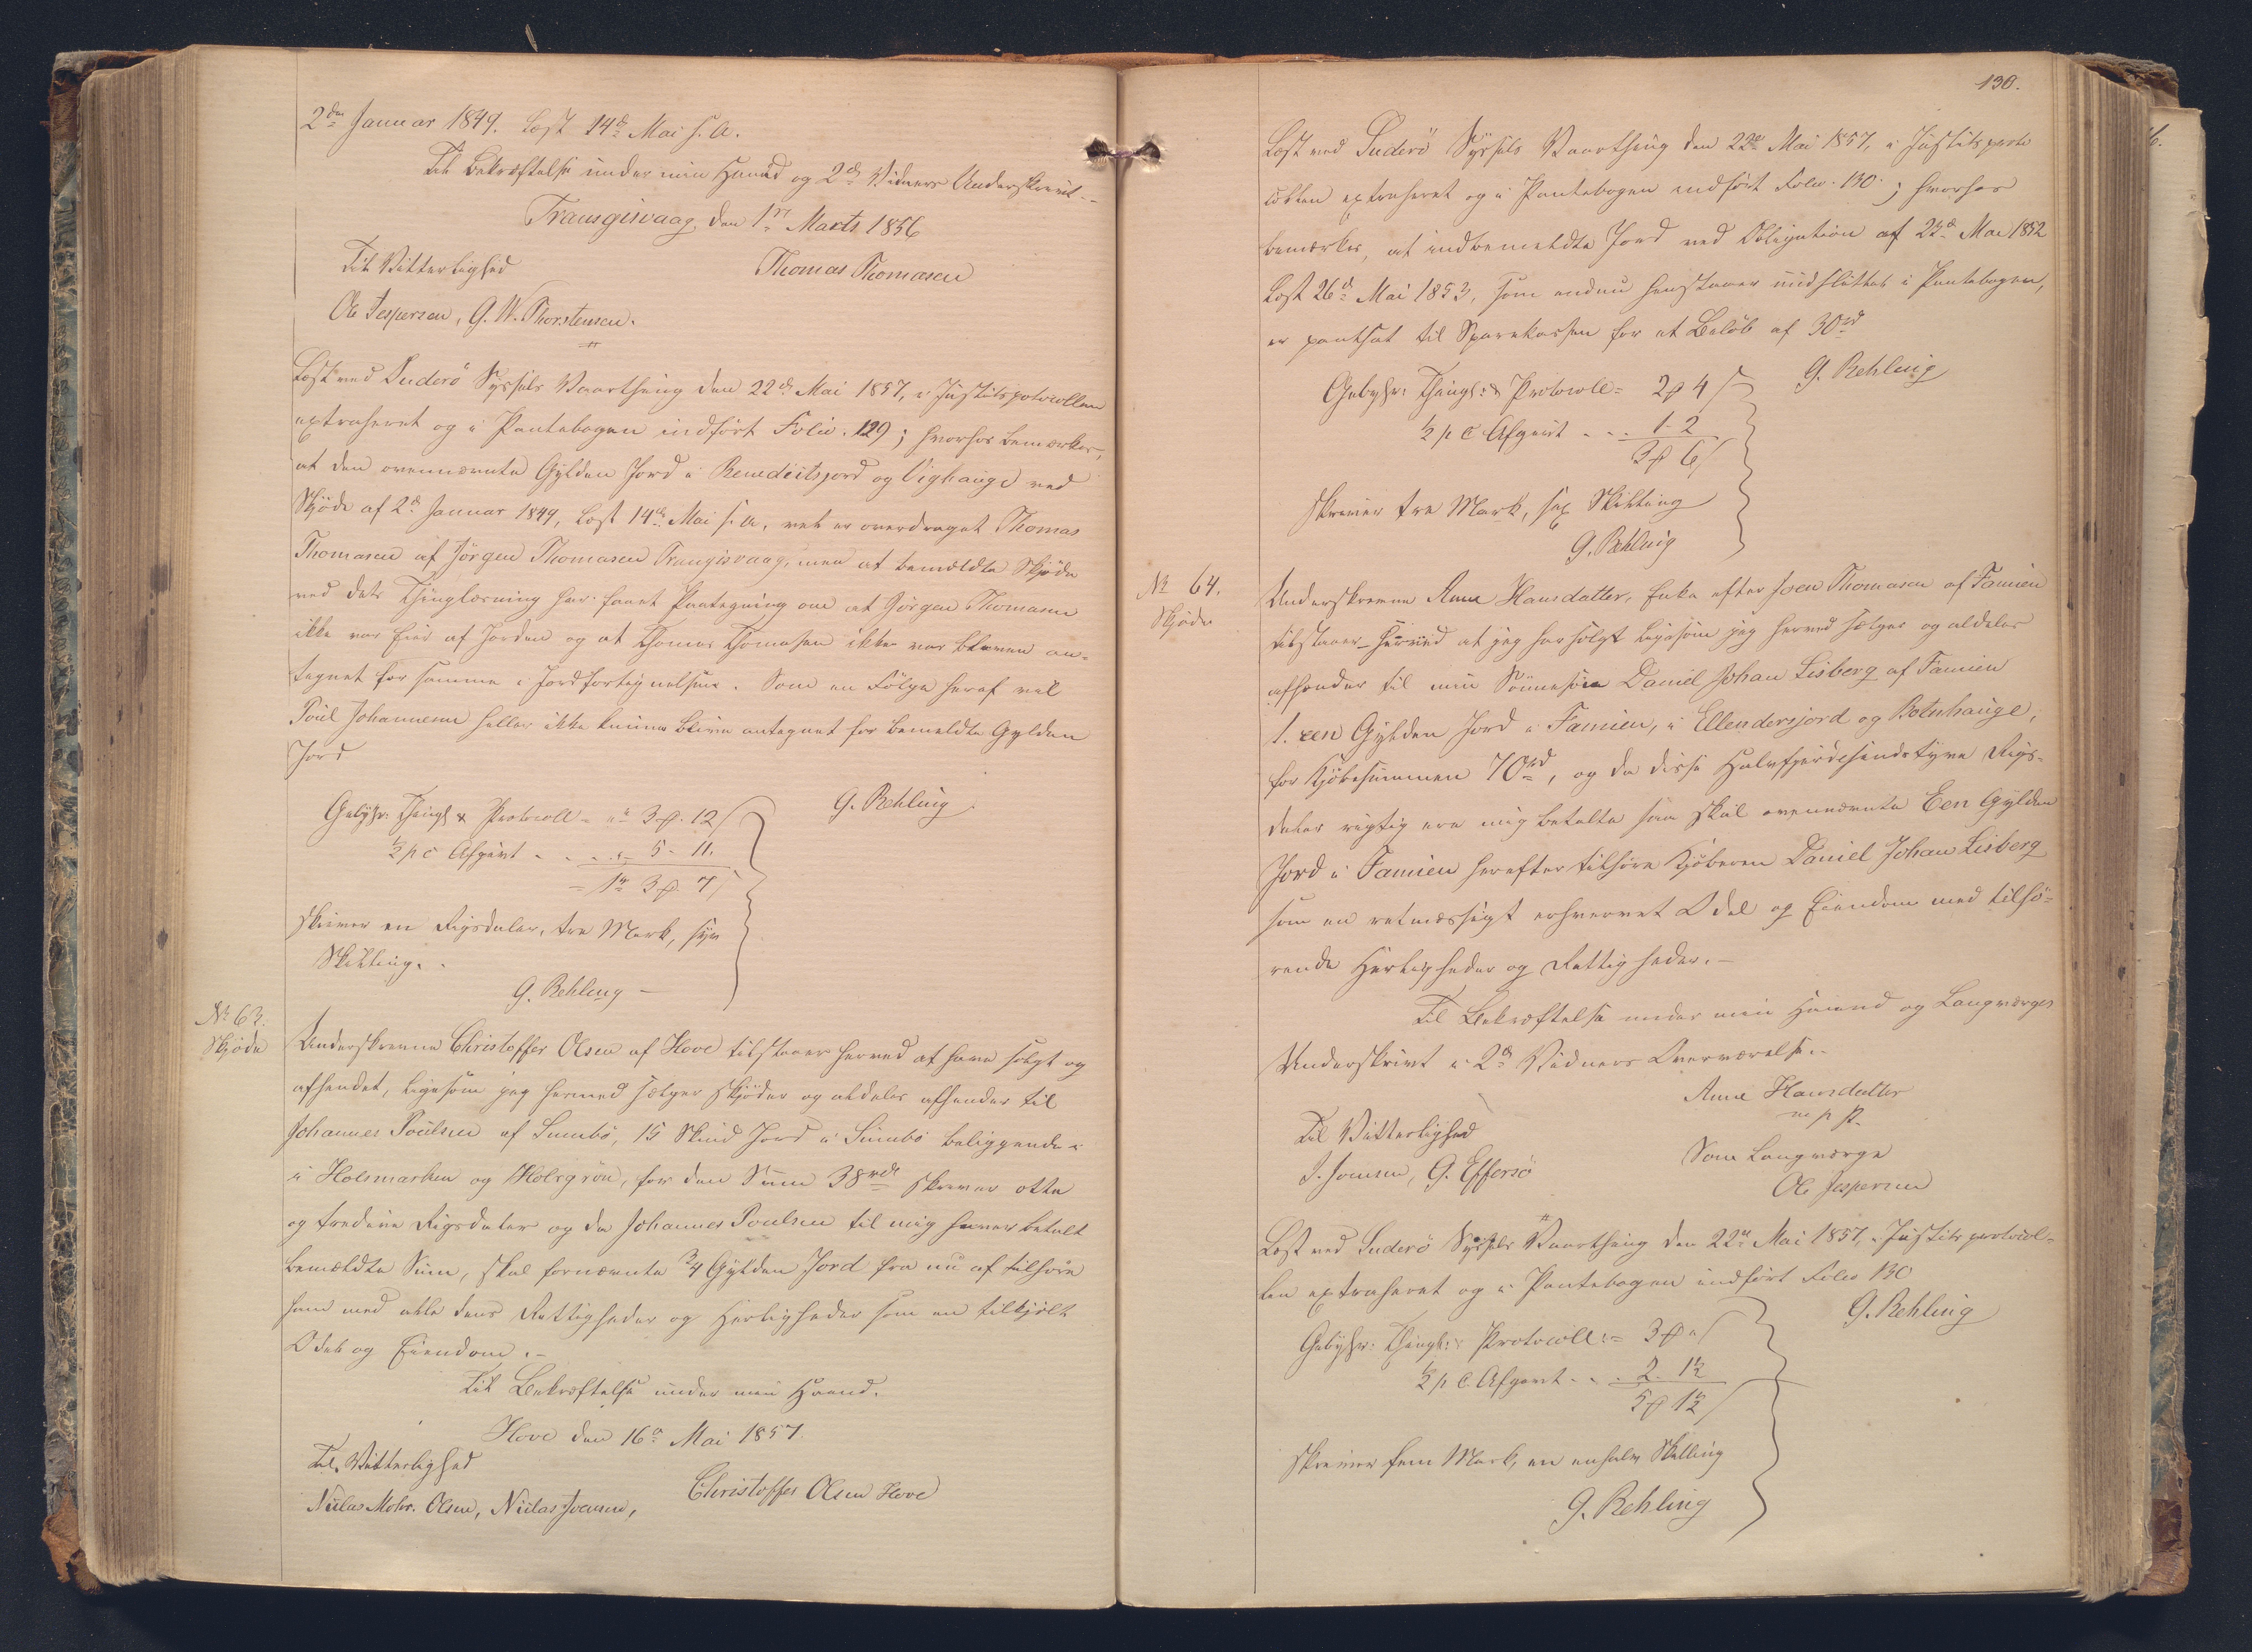 2den Januar 1849. Læst 14de Mai s. A.
Til Bekræftelse under min Haand og 2de Vidners Underskrivt.
Trangisvaag, den 1ste Marts 1856
Til Vitterlighed
Thomas Thomasen
Ole Jespersen, G. W. Thorstensen.
Læst ved Suderö Syssels Vaarthing den 22de Mai 1857, i Justitsprotocollen
extraheret og i Pantebogen indført Folio. 129; hvorhos bemærkes,
at den ovennævnte Gylden Jord i Benedictsjord og Vighauge ved
Skjöde af 2de Januar 1849, læst 14de Mai s. A., vel er overdraget Thomas
Thomasen af Jörgen Thomasen Trangisvaag, men at bemeldte Skjöde
ved dets Thinglæsning har faaet Paategning om at Jörgen Thomasen
ikke var Eier af Jorden og at Thomas Thomasen ikke var bleven an-
tegnet for samme i Jordfortegnelsen. Som en Fölge heraf vil
Poul Johannesen heller ikke kunne blive antegnet for bemeldte Gylden
Jord
G. Rehling.
Gebyhr: Thingl & Protocoll = " 3 ꝑ 12 ſ
½ p C Afgivt . . . 5 - 11.
= 1 rd 3 ꝑ 7 ſ
skriver en Rigsdaler, tre Mark, syv
Skilling.
G. Rehling
No 63.
Skjöde
Underskrevne Christoffer Olsen af Hove tilstaaer herved at have solgt og
afhændet, ligesom jeg hermed sælger skjöder og aldeles afhender til
Johannes Poulsen af Sumbö, 15 Skind Jord i Sumbö beliggende
i Holsmarken og Holsgrön, for den Sum 38 rdl skriver otte
og tredive Rigsdaler og da Johannes Poulsen til mig haver betalt
bemældte Sum, skal fornævnte ¾ Gylden Jord fra nu af tilhøre
ham med alle dens Rettigheder og Herligheder som en tilkjöbt
Odel og Eiendom.
Til Bekræftelse under min Haand.
Hove den 16de Mai 1857.
Til Vitterlighed
Christoffer Olsen Hove
Niclas Mohr. Olsen, Niclas Joensen,
130.
Læst ved Suderö Syssels Vaarthing den 22de Mai 1857, i Justitsproto
collen extraheret og i Pantebogen indfört Folio. 130; hvorhos
bemærkes, at indbemeldte Jord ved Obligation af 23de Mai 1852
læst 26de Mai 1853, som endnu henstaaer uudslettet i Pantebogen,
er pantsat til Sparekassen for et Belöb af 30 rd
G. Rehling
Gebyhr: Thingl: & Protocoll = 2 ꝑ 4 ſ
½ p C Afgivt . . . 1 - 2
3 ꝑ 6 ſ
skriver tre Mark, sex Skilling
G. Rehling
No 64.
Skjöde
Underskrevne Anne Hansdatter, Enke efter Joen Thomasen af Famien
tilstaaer herved at jeg har solgt ligesom jeg herved sælger og aldeles
afhænder til min Sönnesön Daniel Johan Lisberg af Famien
1. een Gylden Jord i Famien, i Ellendersjord og Botnhauge,
for Kjöbesummen 70 rd, og da disse Halvfjerdesindstyve Rigs-
daler rigtig ere mig betalte saa skal ovennævnte Een Gylden
Jord i Famien herefter tilhöre Kjöberen Daniel Johan Lisberg
som en retmæssigt erhvervet Odel og Eiendom med tilhö-
rende Herligheder og Rettigheder.
Til Bekræftelse under min Haand og Laugværges
Underskrivt i 2de Vidners Overværelse.
Anne Hansdatter
m p P.
Til Vitterlighed
Som Laugværge
J. Joensen, G. Effersö
Ole Jespersen
Læst ved Suderö Syssels Vaarthing den 22de Mai 1857, i Justitsprotocol-
len extraheret og i Pantebogen indfört Folio 130
G. Rehling
Gebyhr: Thingl: & Protocoll: = 3 ꝑ " ſ
½ p C. Afgivt . . . 2 - 1½
5 ꝑ 1½ ſ
skriver fem Mark, en enhalv Skilling
G. Rehling